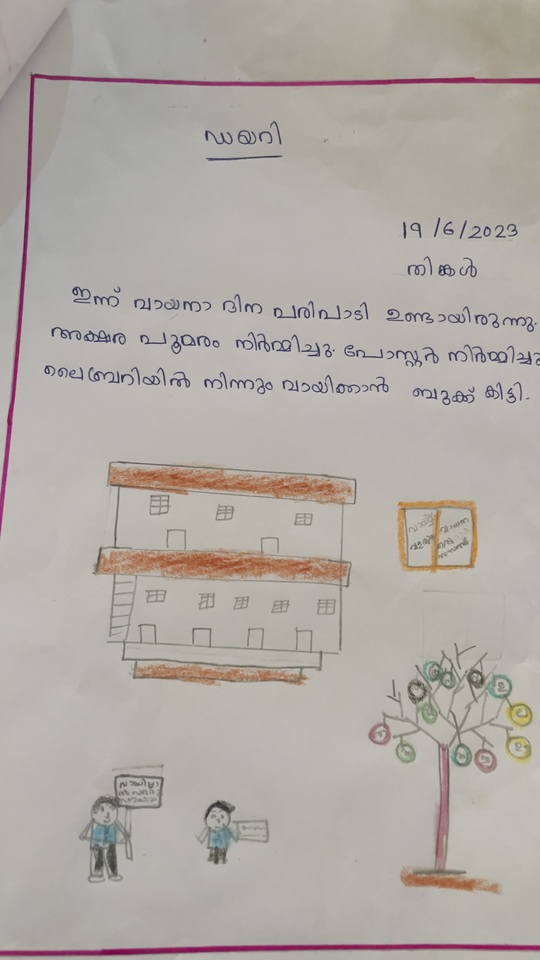 ഡയറി
19/6/2023
തിങ്കൾ
ഇന്ന് വായനാ ദിന പരിപാടി ഉണ്ടായിരുന്നു.
അക്ഷര പൂമരം നിർമ്മിച്ചു. പോസ്റ്റർ നിർമ്മിച്ചു
ലൈബ്രറിയിൽ നിന്നും വായിക്കാൻ ബുക്ക് കിട്ടി.